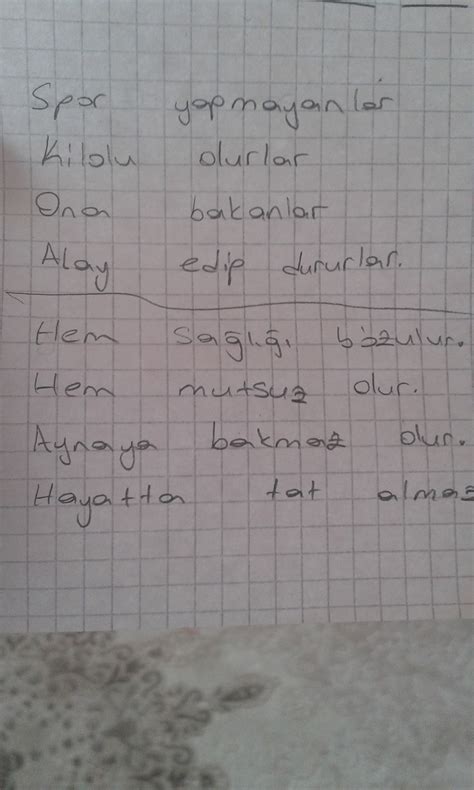 Spor yapmayanlar
Kilolu olurlar
Ona bakanlar
Alay edip dururlar.
Hem sağlığı bozulur.
Hem mutsuz olur.
Aynaya bakmaz olur.
Hayatta tat almaz